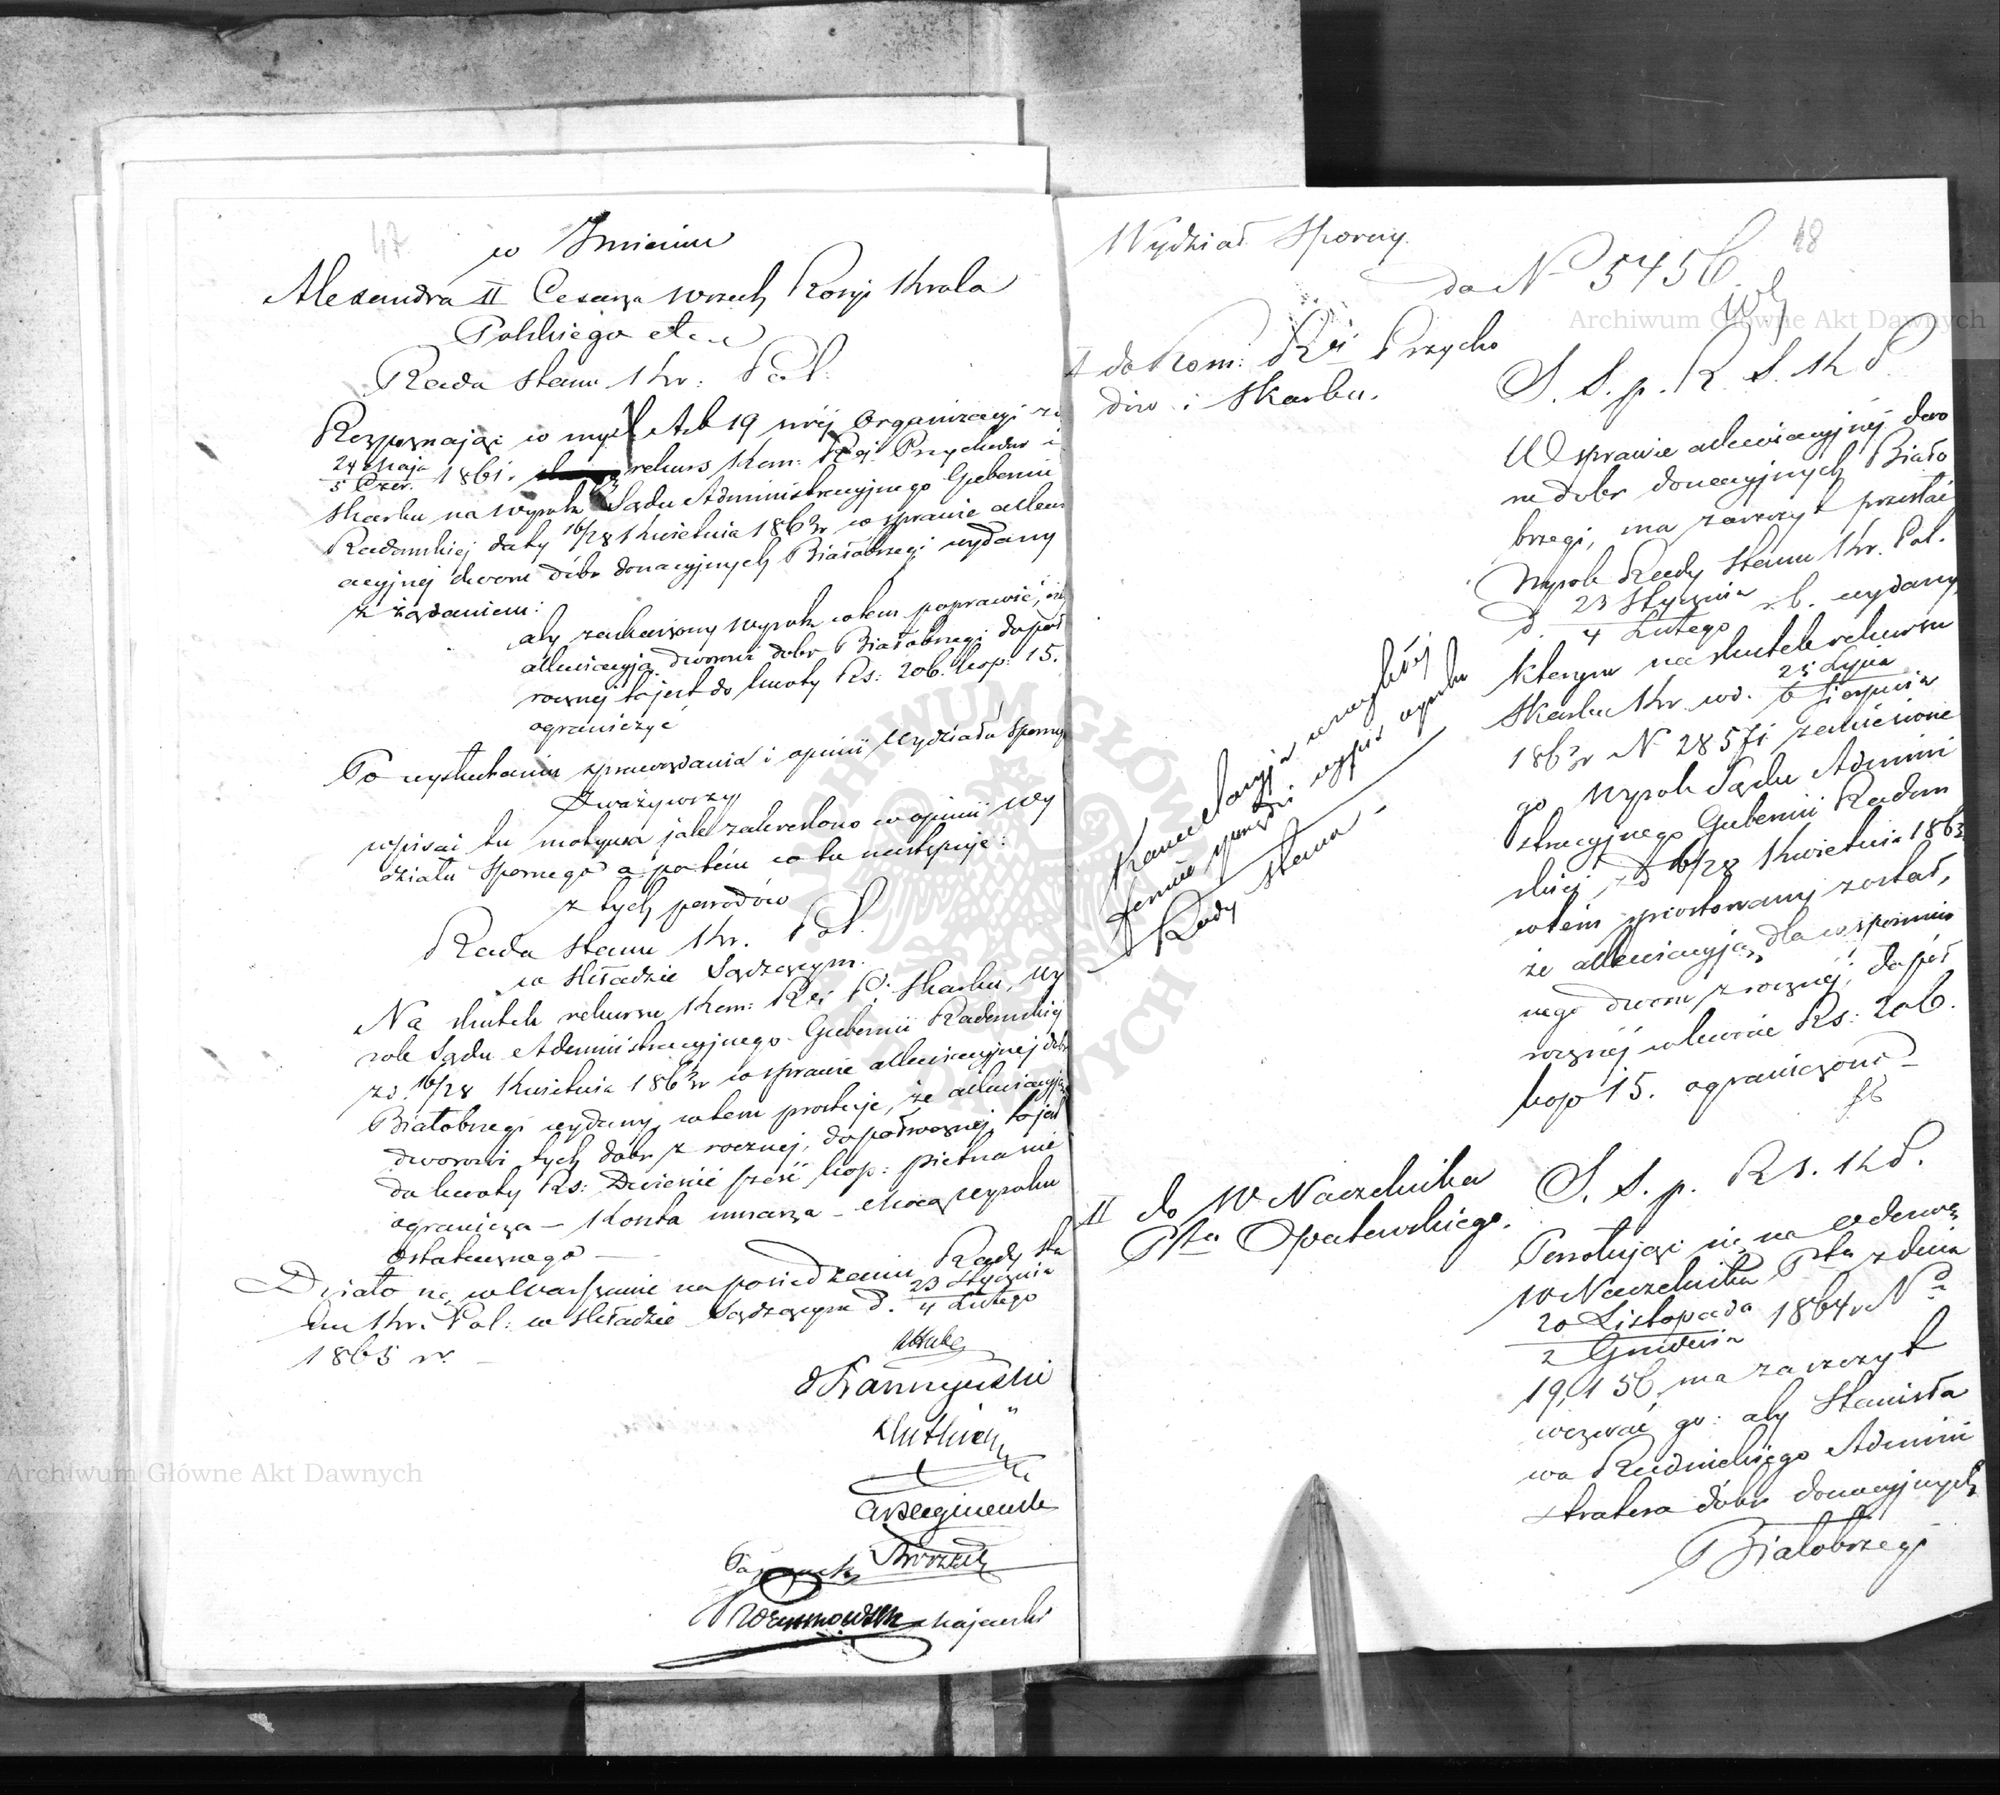 47
w Imieniu
Alexandra II Cesarza Wszech Rosyi Króla
Polskiego etc
Rada Stanu Kr: Pol:
Rozpoznając w myśl Art 19 swej Organizacyi z
24 Maja
5 Czer. 1861. rekurs Kom: Rz. Przychodów i
Skarbu na Wyrok Sądu Administracyjnego Gubernii
Radomskiej daty 16/28 Kwietnia 1863r w sprawie allewi
acyjnej dworu dóbr donacyjnych Białobrzegi wydany
z żądaniem:
aby zaskarżony wyrok w tem poprawić, iżby
allewiacyją dworowi dóbr Białobrzegi do pół
rocznej to jest do kwoty Rs: 206. kop: 15.
ograniczyć
Po wysłuchaniu sprawozdania i opinii Wydziału Spornego
Zważywszy
wpisać tu motywa jak zakreślono w opinii Wy
działu Spornego a potém co tu następuje:
z tych powodów
Rada Stanu Kr. Pol.
w składzie Sądzącym.
Na skutek rekursu Kom: Rz. P. Skarbu, Wy
rok Sądu Administracyjnego Gubernii Radomskiej
z d. 16/28 Kwietnia 1863r w sprawie allewiacyjnej dóbr
Białobrzegi wydany, w tem prostuje, że allewiacyją
dworowi tych dóbr z rocznej, do półrocznej, to jest
do kwoty Rs: Dwieście sześć kop: piętnaście
ogranicza – Koszta umarza – Mocą Wyroku
ostatecznego –
Działo się w Warszawie na posiedzeniu Rady Sta
nu Kr. Pol: w składzie Sądzącym d. 23 Stycznia
4 Lutego
1865 r. –
Majewski
Wydział Sporny.
48
do N 5456
I do Kom: Rz. Przycho
dów i Skarbu.
S. S. p. R. S. K P.
W sprawie allewiacyjnej dwo
ru dóbr donacyjnych Biało
brzegi, ma zaszczyt przesłać
Wyrok Rady Stanu Kr. Pol.
d. 23 Stycznia
4 Lutego r.b. wydany,
którym na skutek rekursu
Skarbu Kr. z d. 25 Lipca
6 Sierpnia
1863r N 28571 zaniesione
go Wyrok Sądu Admini
stracyjnego Gubernii Radom
skiej z d 16/28 Kwietnia 1863
w tém sprostowany został,
że allewiacyja dla wspomnio
nego dworu z rocznej, do pół
rocznej w kwocie Rs: 206.
kop 15. ograniczoną –
Kancelaryja
sporządzi wypis wyroku
Rady Stanu –
II do W Naczelnika
Ptu Opatowskiego.
S. S. p. R S. K P.
Powołując się na Odezwę
W Naczelnika Ptu z dnia
20 Listopada
2 Grudnia 1864r N
19,156, ma zaszczyt
wezwać go: aby Stanisła
wa Rudnickiego Admini
stratora dóbr donacyjnych
Białobrzegi
Archiwum Główne Akt Dawnych
Archiwum Główne Akt Dawnych
ARCHIWUM GŁÓWNE AKT DAWNYCH